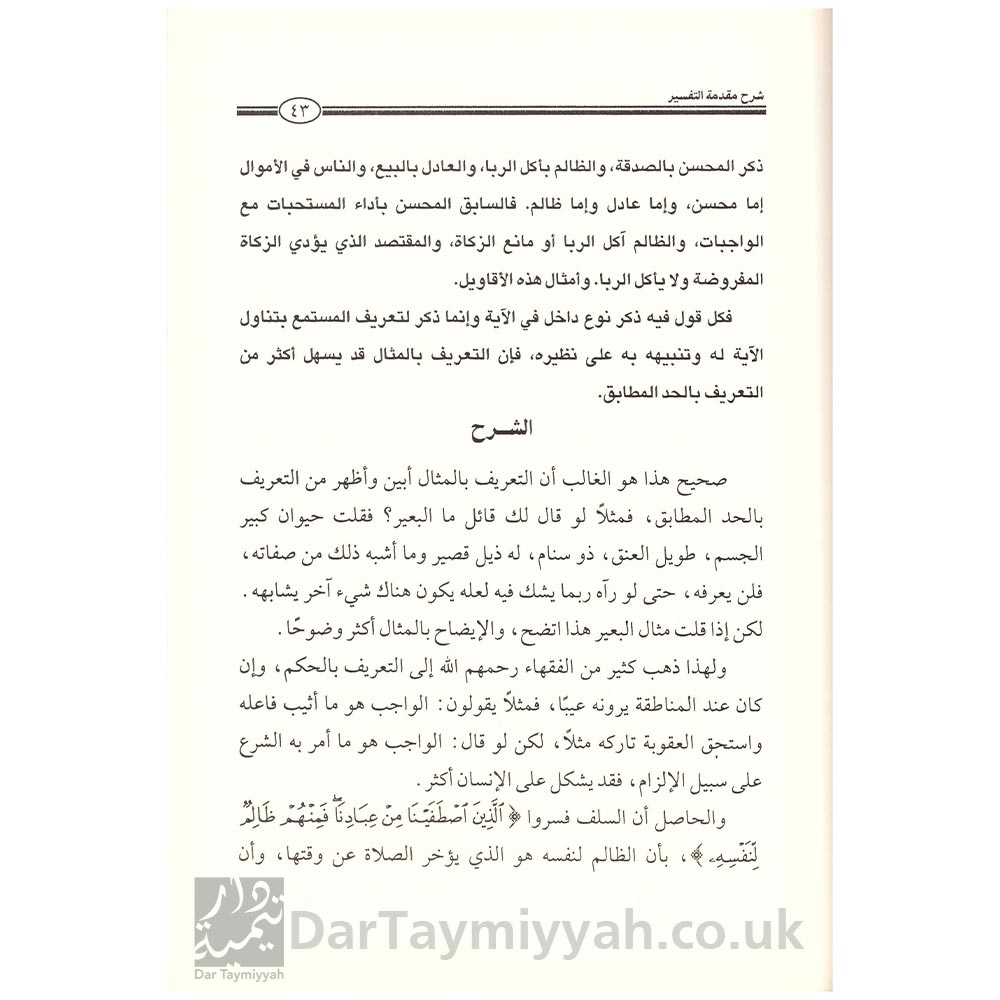 شرح مقدمة التفسير
٤٣
ذكر المحسن بالصدقة، والظالم بأكل الربا، والعادل بالبيع، والناس في الأموال
إما محسن، وإما عادل وإما ظالم. فالسابق المحسن بأداء المستحبات مع
الواجبات، والظالم آكل الربا أو مانع الزكاة، والمقتصد الذي يؤدي الزكاة
المفروضة ولا يأكل الربا. وأمثال هذه الأقاويل.
فكل قول فيه ذكر نوع داخل في الآية وإنما ذكر لتعريف المستمع بتناول
الآية له وتنبيهه به على نظيره، فإن التعريف بالمثال قد يسهل أكثر من
التعريف بالحد المطابق.
الشـرح
صحيح هذا هو الغالب أن التعريف بالمثال أبين وأظهر من التعريف
بالحد المطابق، فمثلاً لو قال لك قائل ما البعير؟ فقلت حيوان كبير
الجسم، طويل العنق، ذو سنام، له ذيل قصير وما أشبه ذلك من صفاته،
فلن يعرفه، حتى لو رآه ربما يشك فيه لعله يكون هناك شيء آخر يشابهه.
لكن إذا قلت مثال البعير هذا اتضح، والإيضاح بالمثال أكثر وضوحًا.
ولهذا ذهب كثير من الفقهاء رحمهم الله إلى التعريف بالحكم، وإن
كان عند المناطقة يرونه عيبًا، فمثلاً يقولون: الواجب هو ما أثيب فاعله
واستحق العقوبة تاركه مثلاً، لكن لو قال: الواجب هو ما أمر به الشرع
على سبيل الإلزام، فقد يشكل على الإنسان أكثر.
والحاصل أن السلف فسروا ﴿ ٱلَّذِينَ ٱصۡطَفَيۡنَا مِنۡ عِبَادِنَاۖ فَمِنۡهُمۡ ظَالِمٞ
لِّنَفۡسِهِۦ ﴾، بأن الظالم لنفسه هو الذي يؤخر الصلاة عن وقتها، وأن
دار تيمية
Dar Taymiyyah
DarTaymiyyah.co.uk